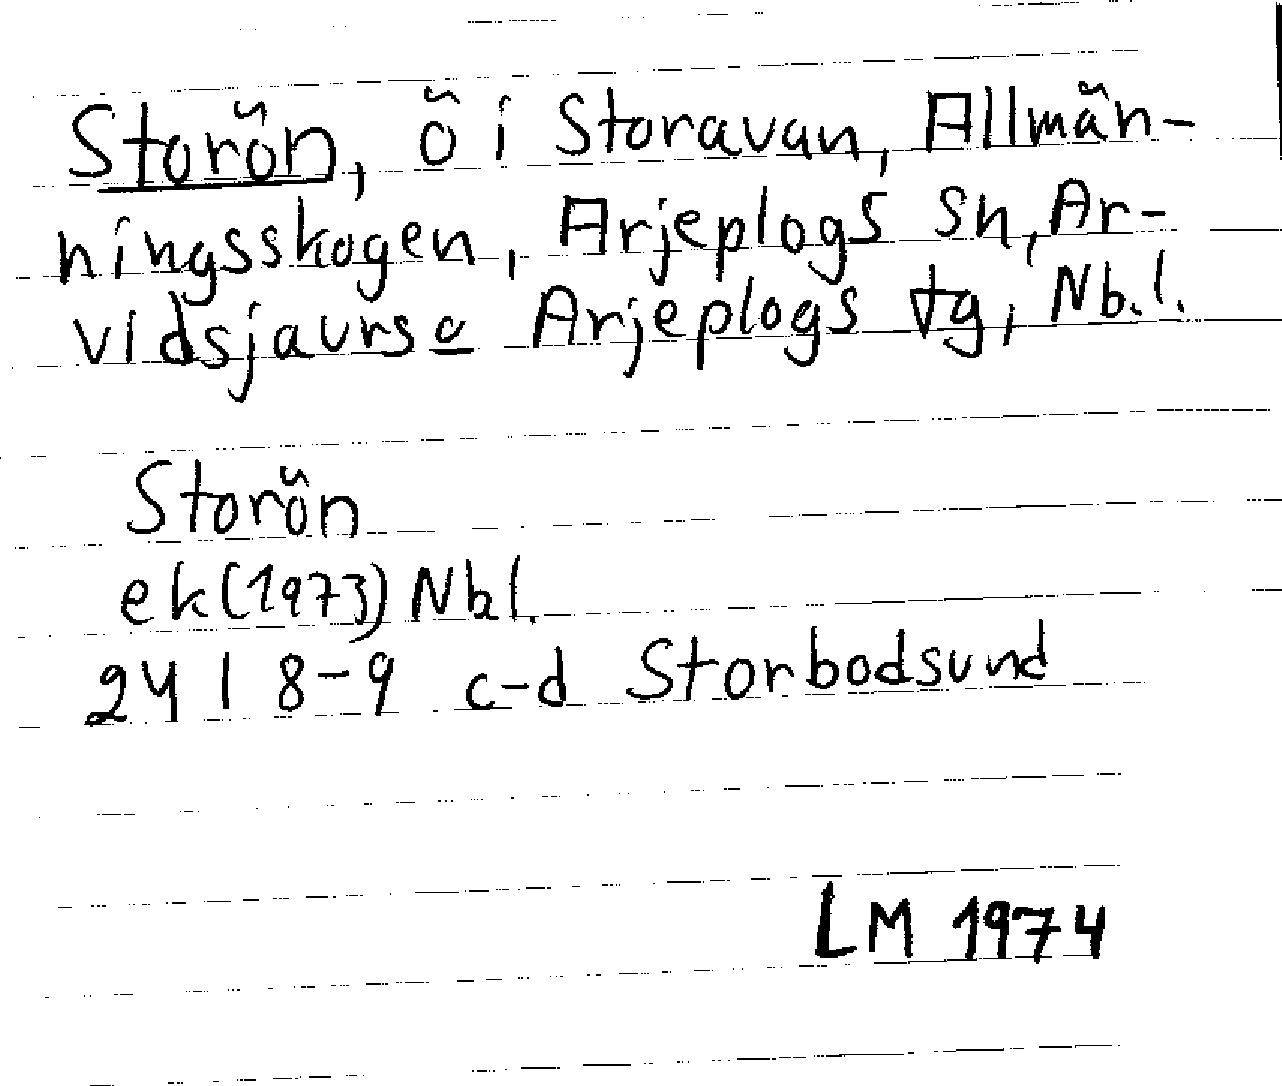 Storön, ö i Storavan, Allmän-
ningsskogen, Arjeplogs sn, Ar-
vidsjaurs o Arjeplogs tg, Nb.l.
Storön
ek(1973) Nbl.
24 I 8-9 c-d Storbodsund
LM 1974